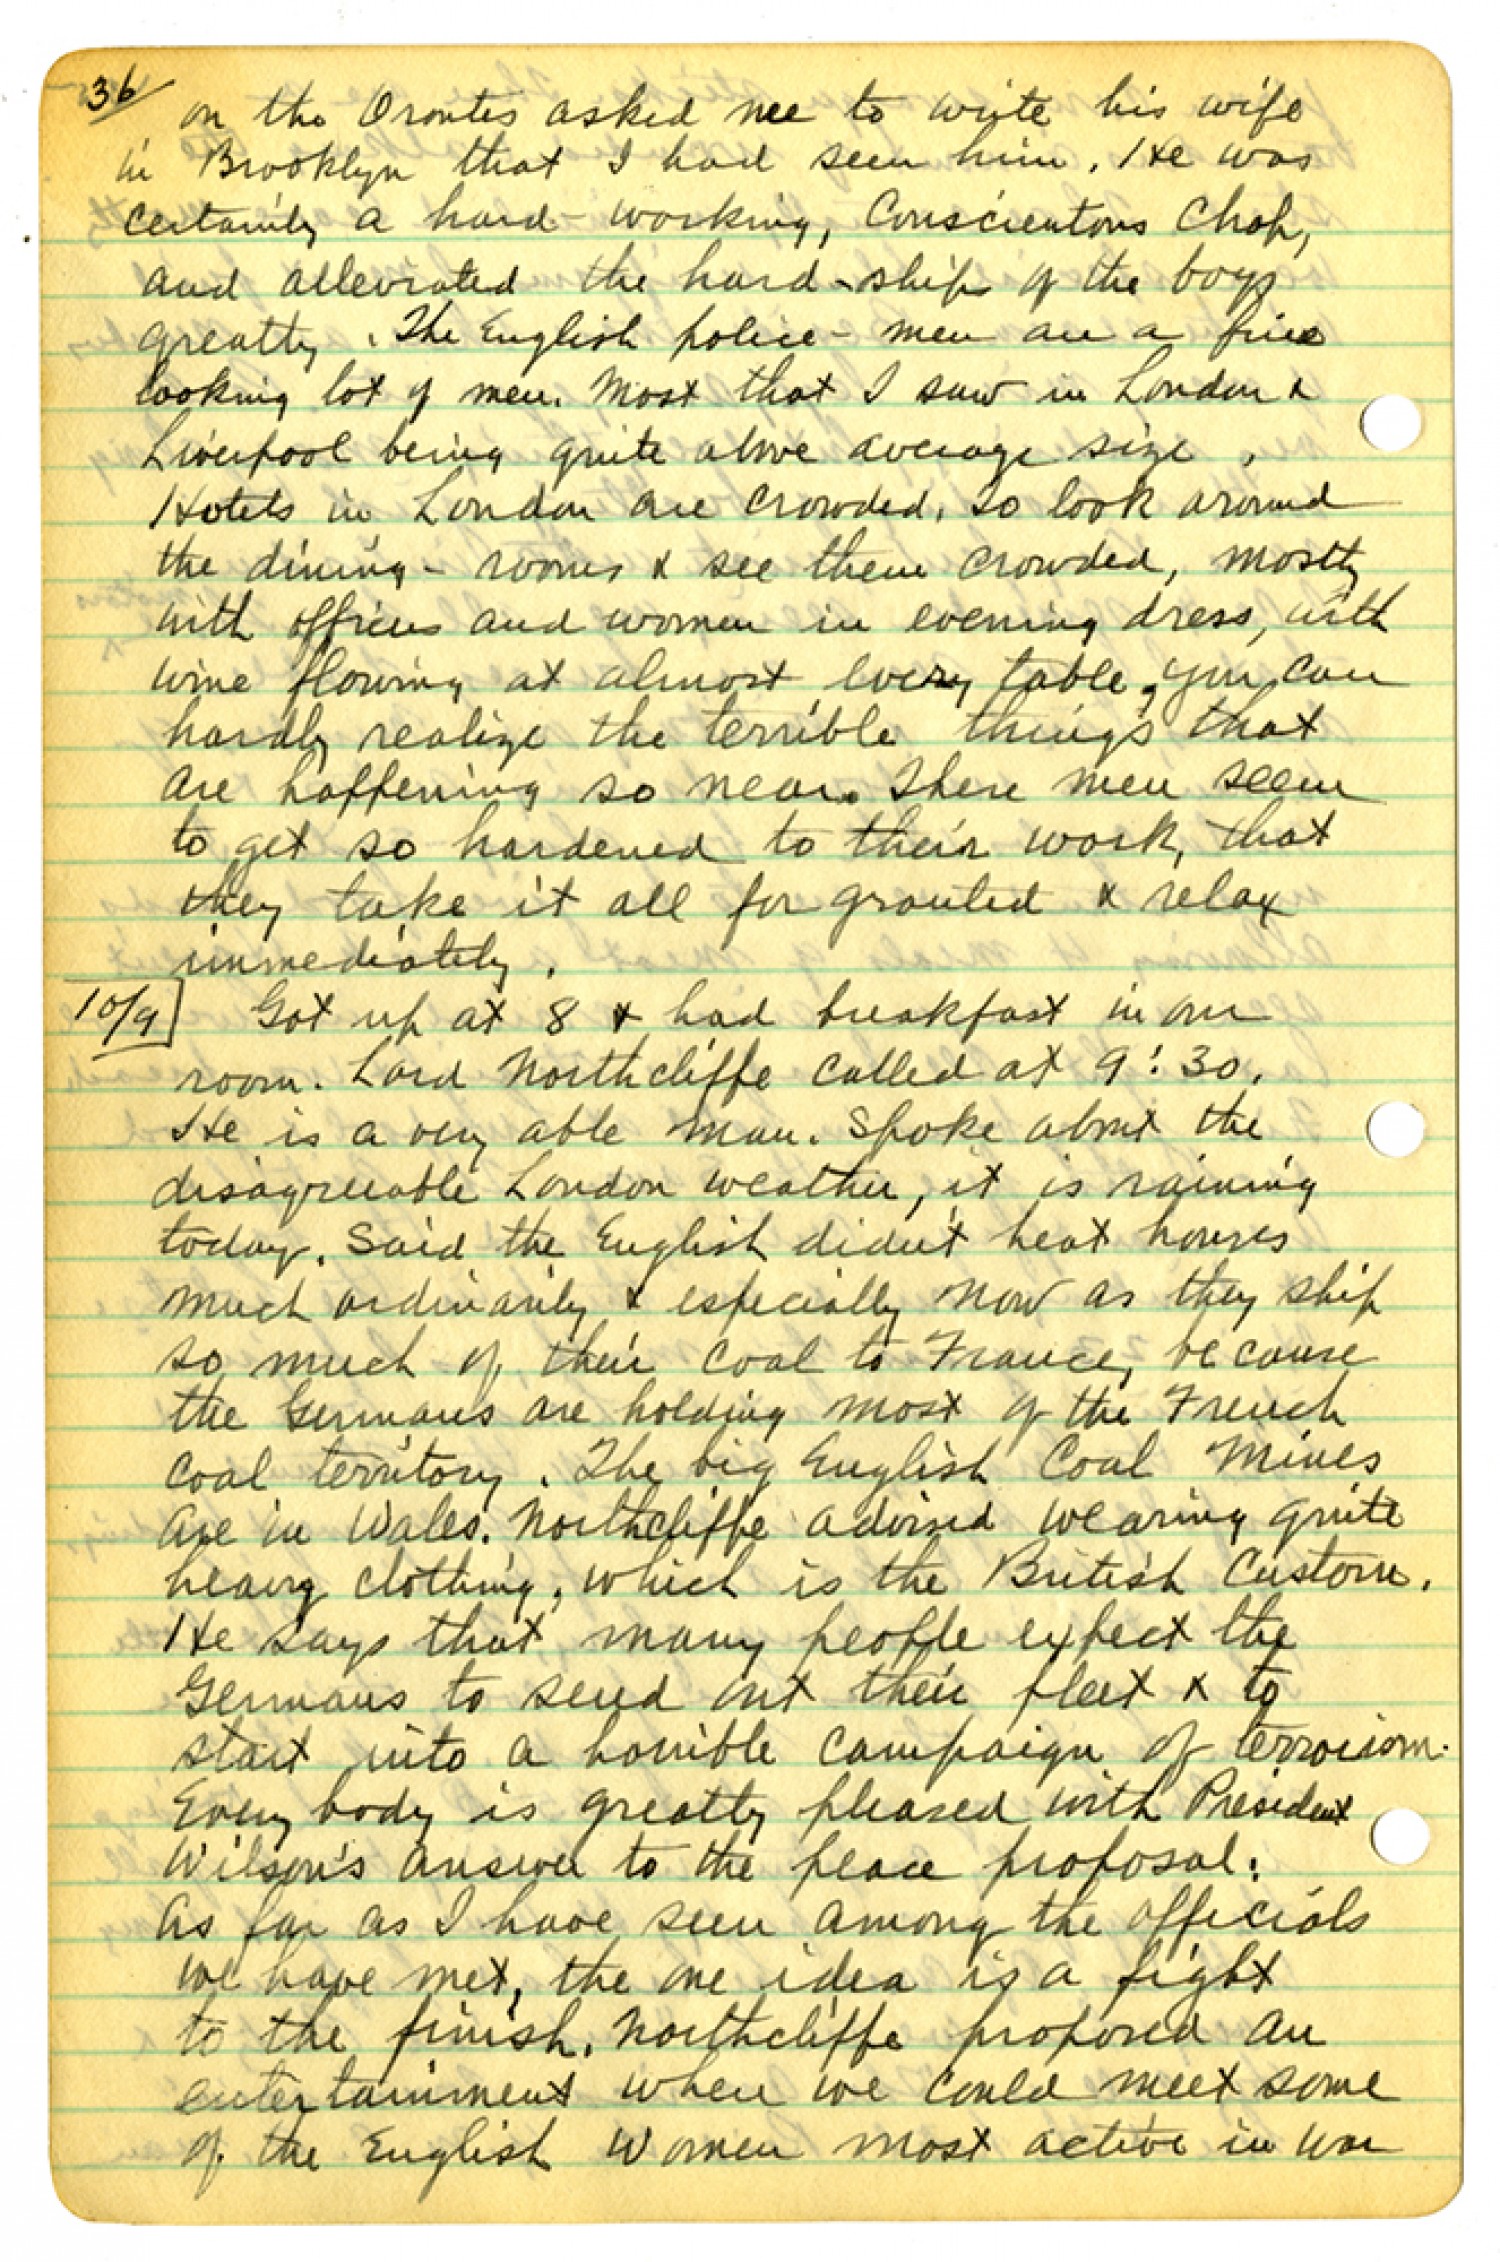 36
on the Orontes asked me to write his wife
in Brooklyn that I had seen him. He was
certainly a hard-working, Conscientous Chap,
and alleviated the hard-ship of the boys
greatly. The English police-men are a fine
looking lot of men. Most that I saw in London &
Liverpool being quite above average size.
Hotels in London are crowded. To look around
the dining-rooms & see them crowded, mostly
with officers and women in evening dress, with
wine flowing at almost every table, you can
hardly realize the terrible things that
are happening so near. These men seem
to get so hardened to their work, that
they take it all for granted & relax
immediately.
10/9 Got up at 8 & had breakfast in our
room. Lord Northcliffe called at 9:30.
He is a very able man. Spoke about the
disagreeable London weather, it is raining
today. Said the English didn't heat houses
much ordinarily & especially now as they ship
so much of their coal to France, because
the Germans are holding most of the French
coal territory. The big English Coal Mines
are in Wales. Northcliffe advised wearing quite
heavy clothing, which is the British Custom.
He says that many people expect the
Germans to send out their fleet & to
start into a horrible campaign of terroism.
Every body is greatly pleased with President
Wilson's answer to the peace proposal.
As far as I have seen among the officials
we have met, the one idea is a fight
to the finish. Northcliffe proposed an
entertainment when we could meet some
of the English Women most active in war